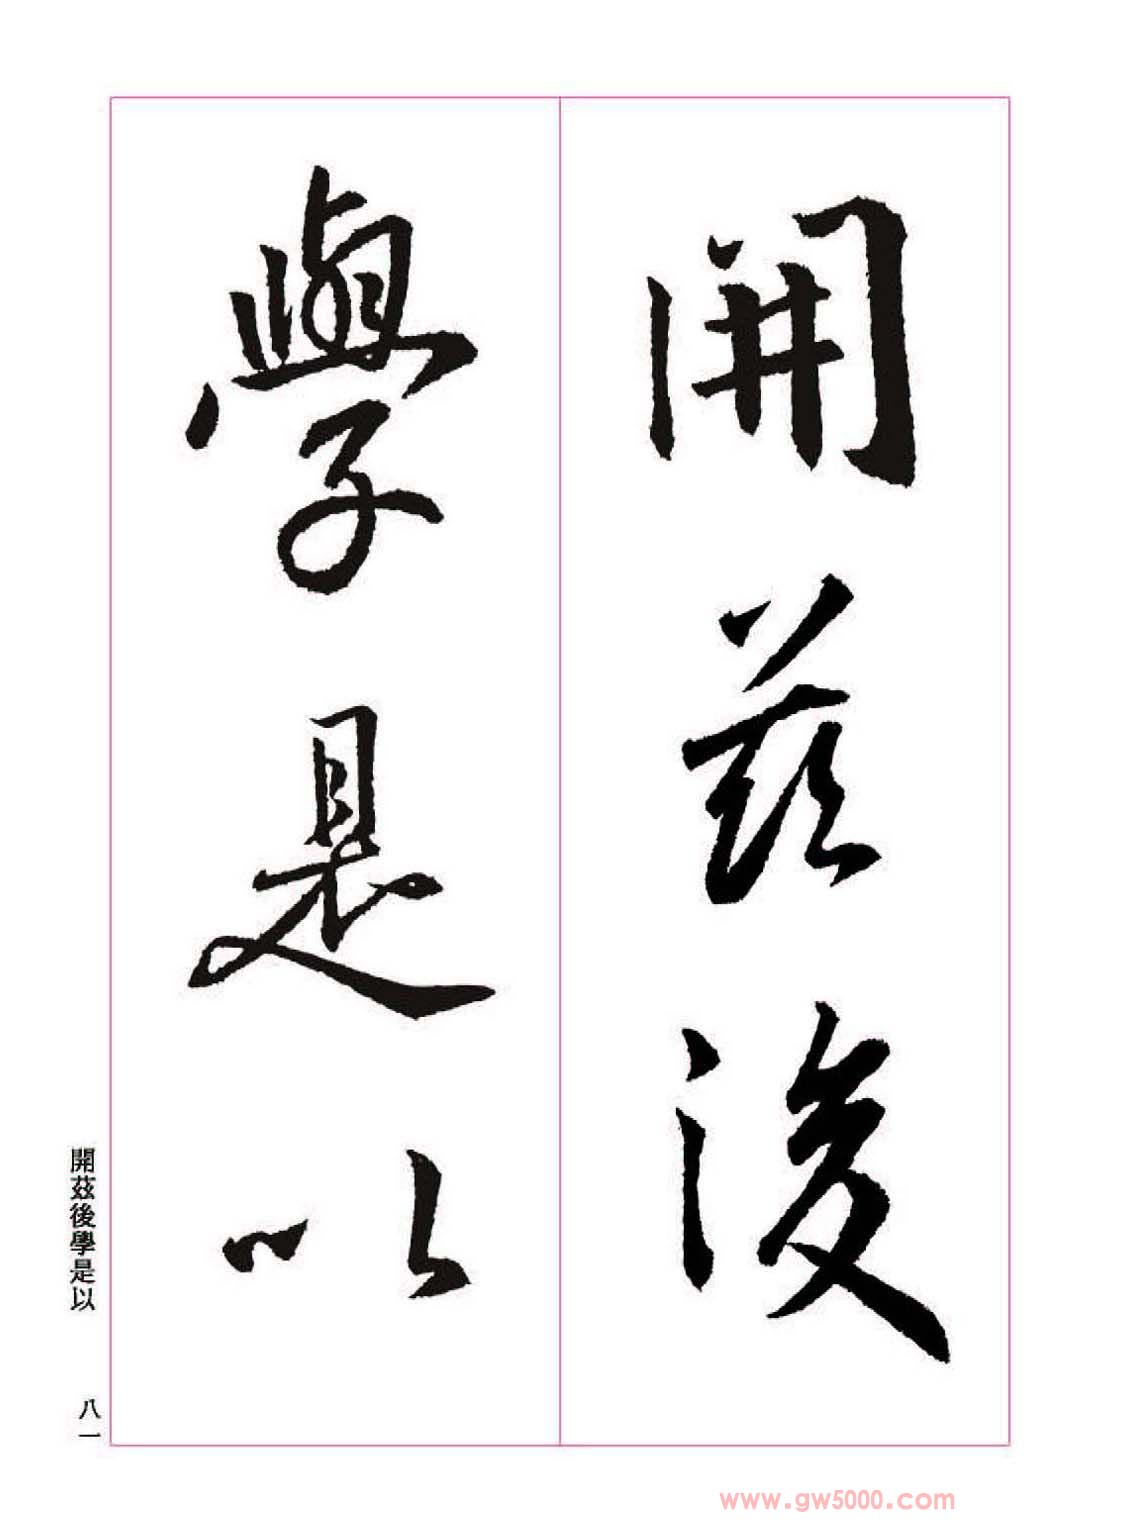 開茲後
學是以
開茲後學是以
八一
www.gw5000.com